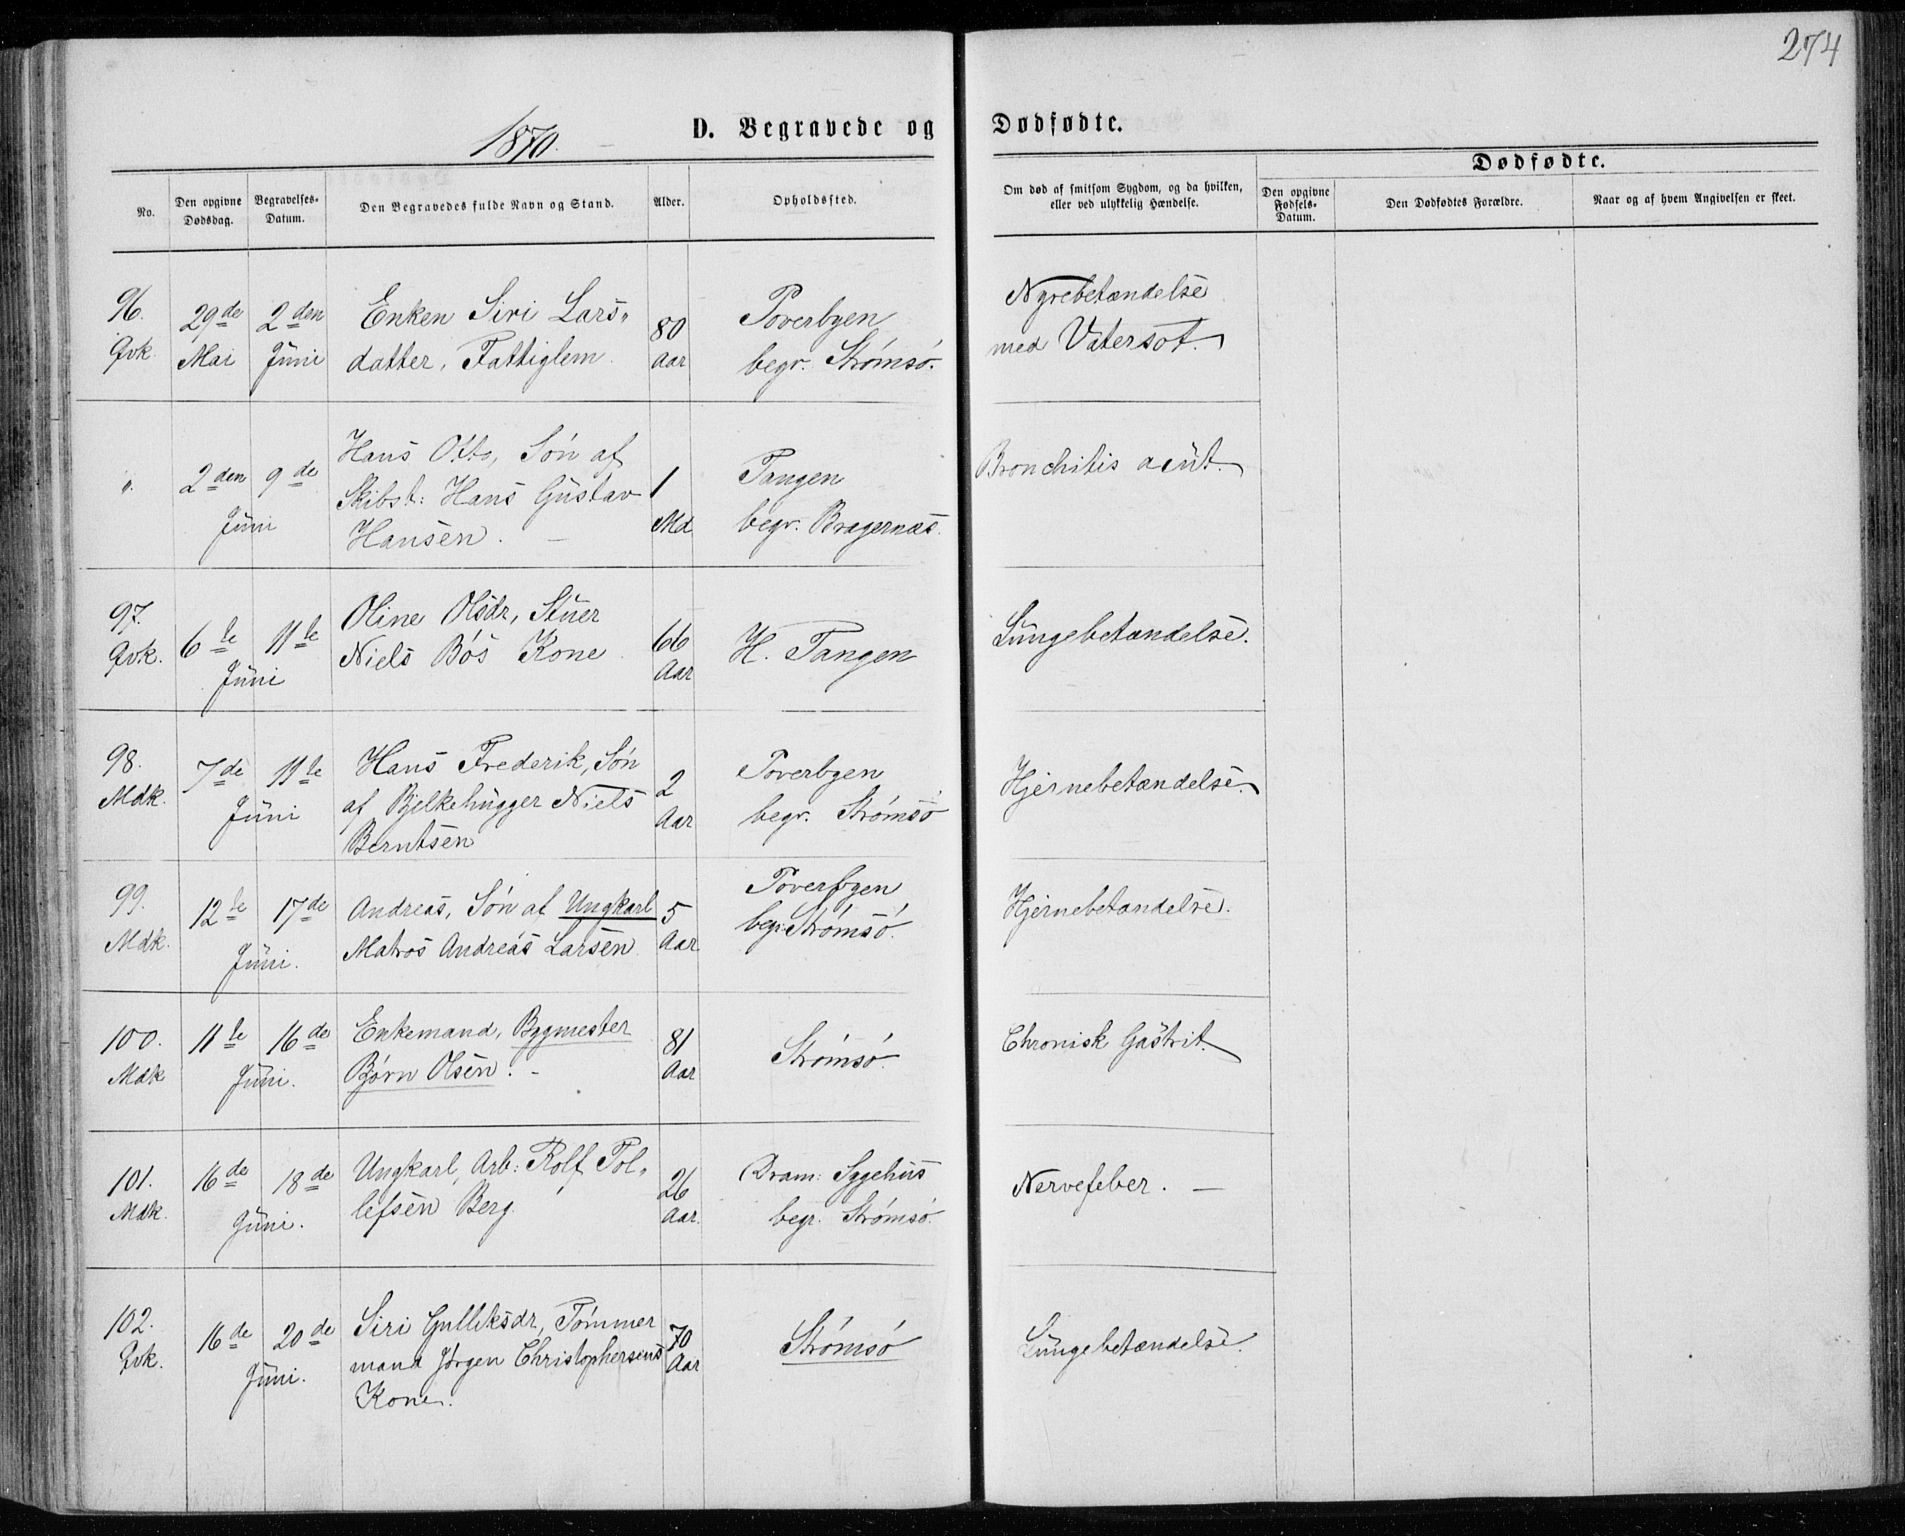 274
1870.
D. Begravede og Dødfødte.
Dødfødte.
No.
Den opgivne Dødsdag.
Begravelses-Datum.
Den Begravedes fulde Navn og Stand.
Alder.
Opholdssted.
Om død af smitsom Sygdom, og da hvilken, eller ved ulykkelig Hændelse.
Den opgivne Fødsels-Datum.
Den Dødfødtes Forældre.
Naar og af hvem Angivelsen er skeet.
96. 29de 2den Enken Siri Lars„ 80 Poverbyen Nyrebetændelse
Qvk. Mai Juni datter, Fattiglem. Aar begr. Strømsø. med Vatersot.
Hans Otto, Søn af
„. 2den 9de Skibst: Hans Gustav 1 Tangen Bronchitis acut.
Juni Hansen. — Md begr. Bragernæs.
97. Oline Olsdr, Stuer
Qvk. 6te 11te Niels Bøs Kone. 66 H. Tangen Lungebetændelse.
Juni Aar
98. 7de 11te Hans Frederik, Søn 2 Poverbyen Hjernebetændelse.
Mdk. Juni af Bjelkehugger Niels Aar begr. Strømsø
Berntsen
99. 12te 17de Andreas, Søn af Ungkarl 5 Poverbyen Hjernebetændelse.
Mdk. Juni. Matros Andreas Larsen. Aar begr. Strømsø.
100. 11te 16de Enkemand, Bygmester 81 Strømsø. Chronisk Gastrit.
Mdk Juni. Bjørn Olsen. - Aar
101. 16de 18de Ungkarl, Arb: Rolf Tol„ 26 Dram: Sygehus Nervefeber. —
Mdk. Juni. lefsen Berg Aar. begr. Strømsø.
102. 16de 20de Siri Gulliksdr, Tømmer 70 Strømsø Lungebetændelse.
Qvk. Juni. mand Jørgen Christophersens Aar
Kone.